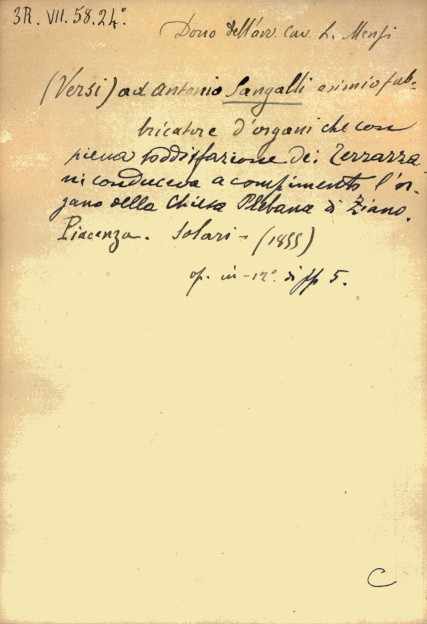 3R. VII. 58. 24°.
Dono dell'avv. Cav. L. Mensi
(Versi) ad Antonio Sangalli esimio fab-
bricatore d'organi che con
piena soddisfazione dei Terrazza-
ni conduceva a compimento l'or-
gano della Chiesa Plebana di Ziano.
Piacenza. Solari - (1855)
op. in-12° di pp 5.
C